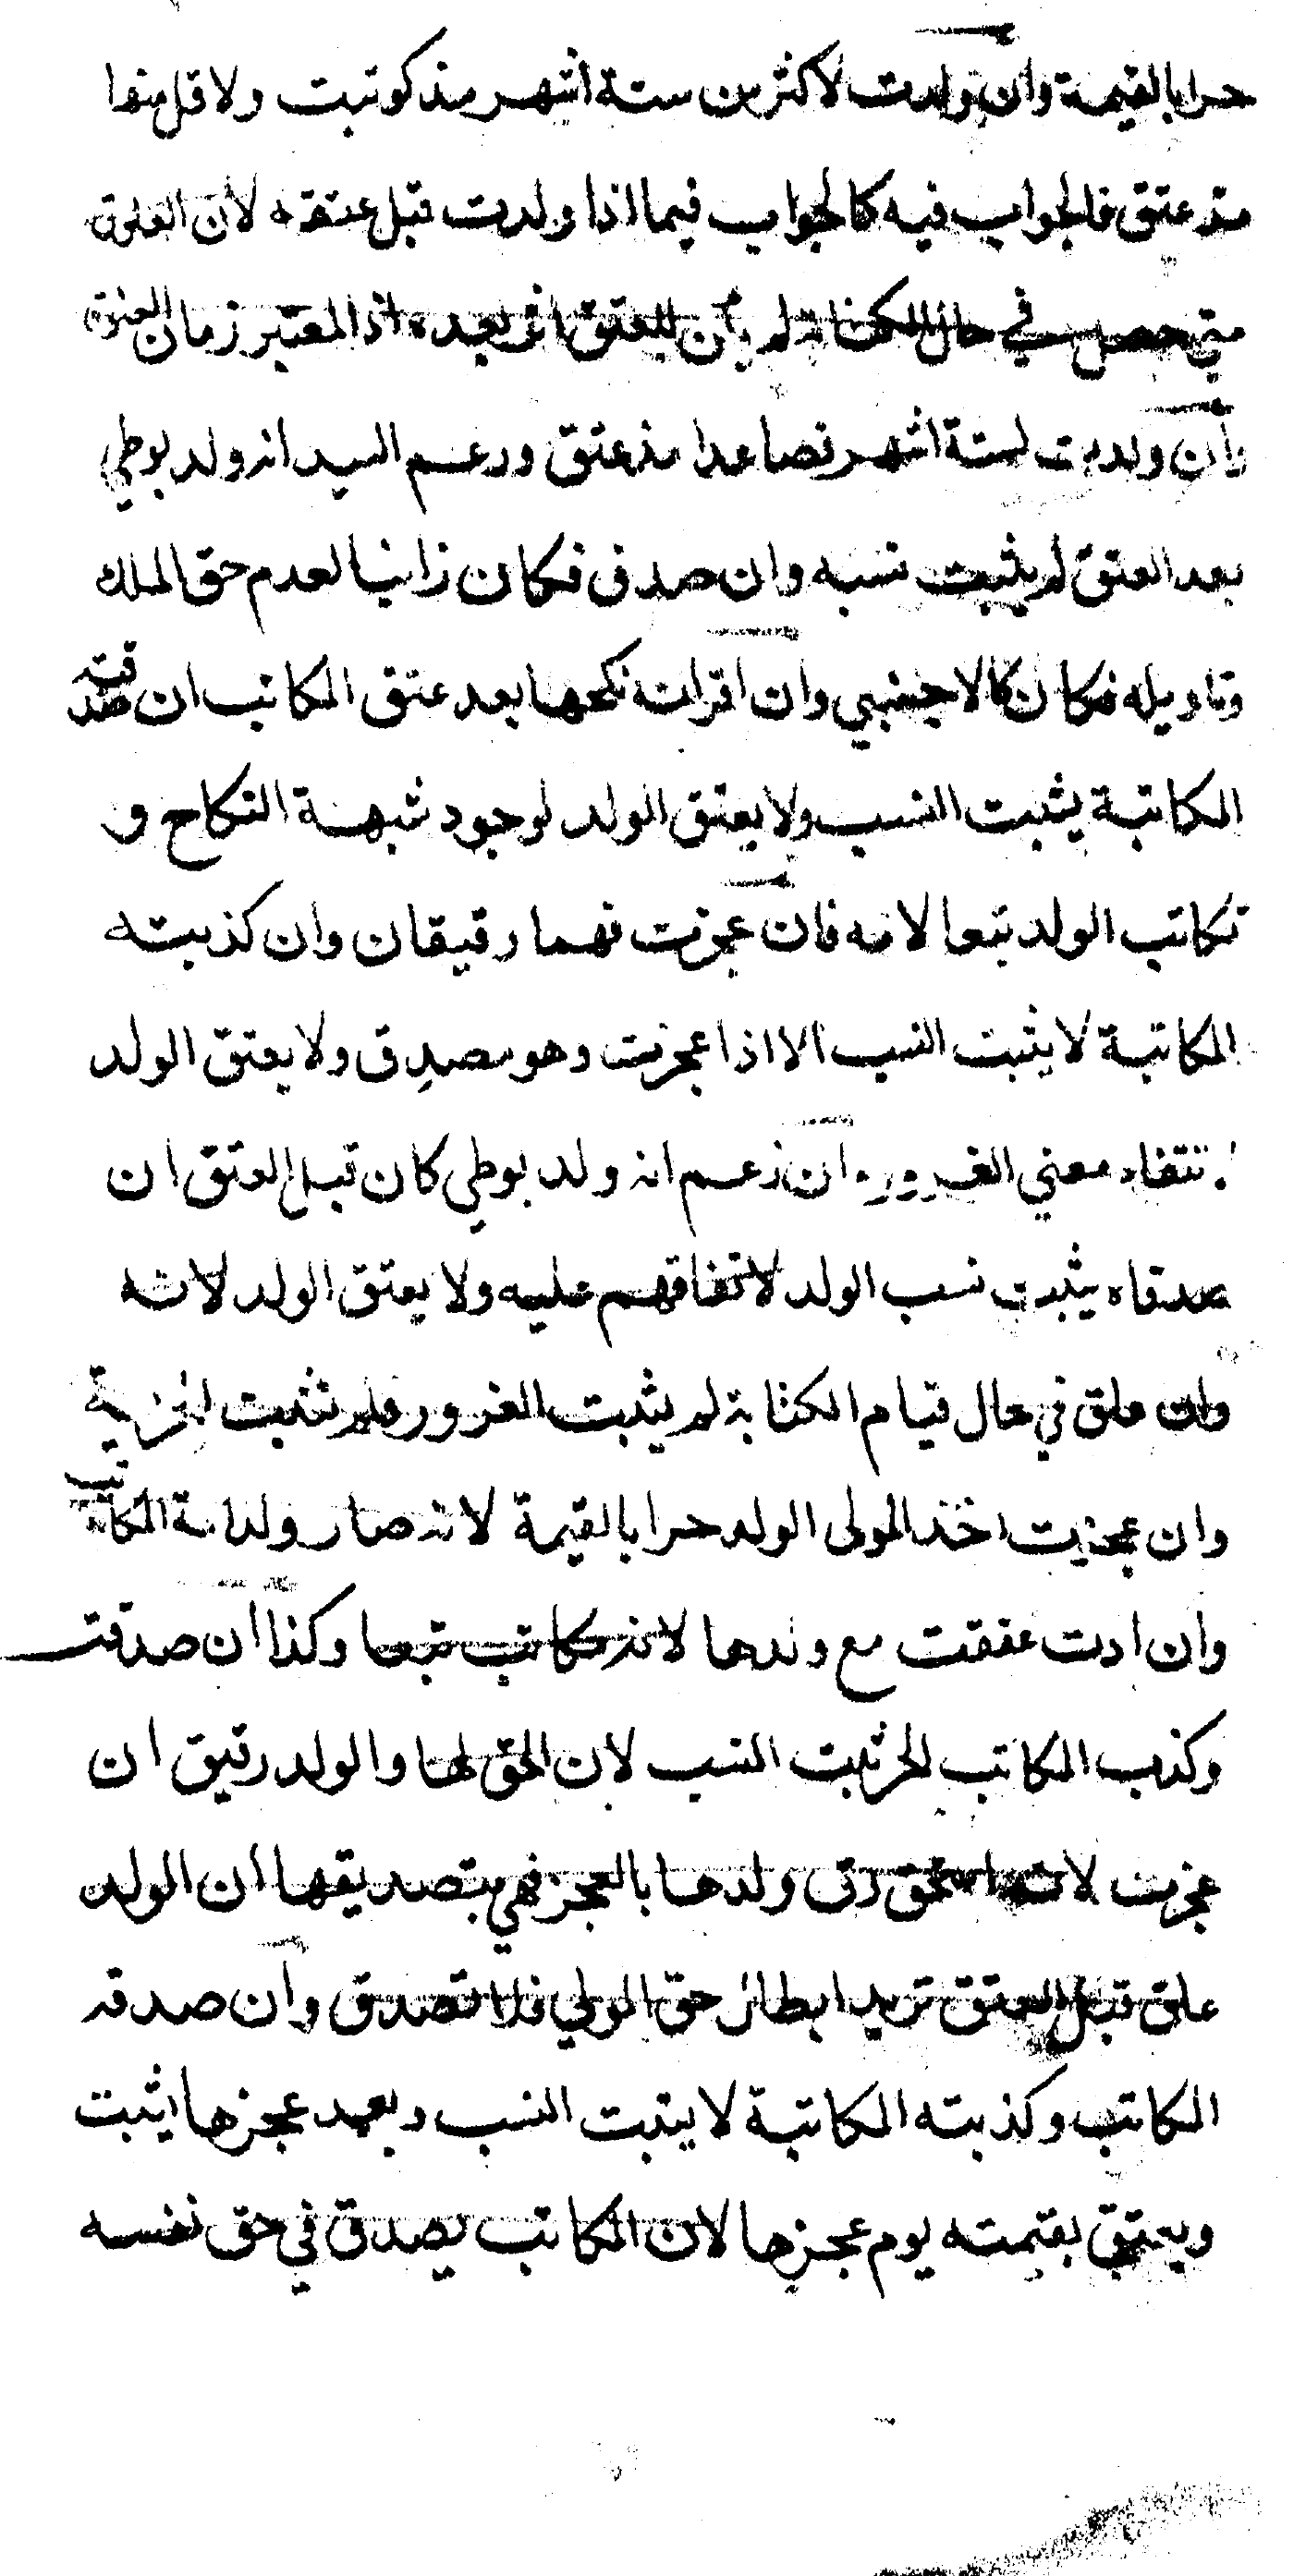 حرا بالقيمة وان ولدت لاكثر من ستة اشهر منذ كوتبت ولاقل منها
منذ عتق فالجواب فيه كالجواب فيما اذا ولدت قبل عتقه لان العلوق
متى حصل في حال الكتابة لم يكن للعتق اثر بعده اذ المعتبر زمان العلوق
وان ولدت لستة اشهر فصاعدا منذ عتق وزعم السيد انه ولد بوطي
بعد العتق لم يثبت نسبه وان صدق فكان زانيا لعدم حق الملك
وتاويله فكان كالاجنبي وان اقر انه نكحها بعد عتق المكاتب ان صدقته
المكاتبة يثبت النسب ولا يعتق الولد لوجود شبهة النكاح و
تكاتب الولد تبعا لامه فان عجزت فهما رقيقان وان كذبته
المكاتبة لا يثبت النسب الا اذا عجزت وهو مصدق ولا يعتق الولد
لانتفاء معني الغرور وان زعم انه ولد بوطي كان قبل العتق ان
صدقاه يثبت نسب الولد لاتفاقهم عليه ولا يعتق الولد لانه
وان علق في حال قيام الكتابة لم يثبت الغرور فلم تثبت الحرية
وان عجزت اخذ المولى الولد حرا بالقيمة لانه صار ولد امة المكاتب
وان ادت عتقت مع ولدها لانه مكاتب تبعا وكذا ان صدقت
وكذب المكاتب الحر ثبت النسب لان الحق لها والولد رقيق ان
عجزت لانه استحق رق ولدها بالعجز فهي بتصديقها ان الولد
علق قبل العتق تريد ابطال حق المولي فلا تصدق وان صدقه
المكاتب وكذبته المكاتبة لا يثبت النسب وبعد عجزها يثبت
ويعتق بقيمته يوم عجزها لان المكاتب يصدق في حق نفسه